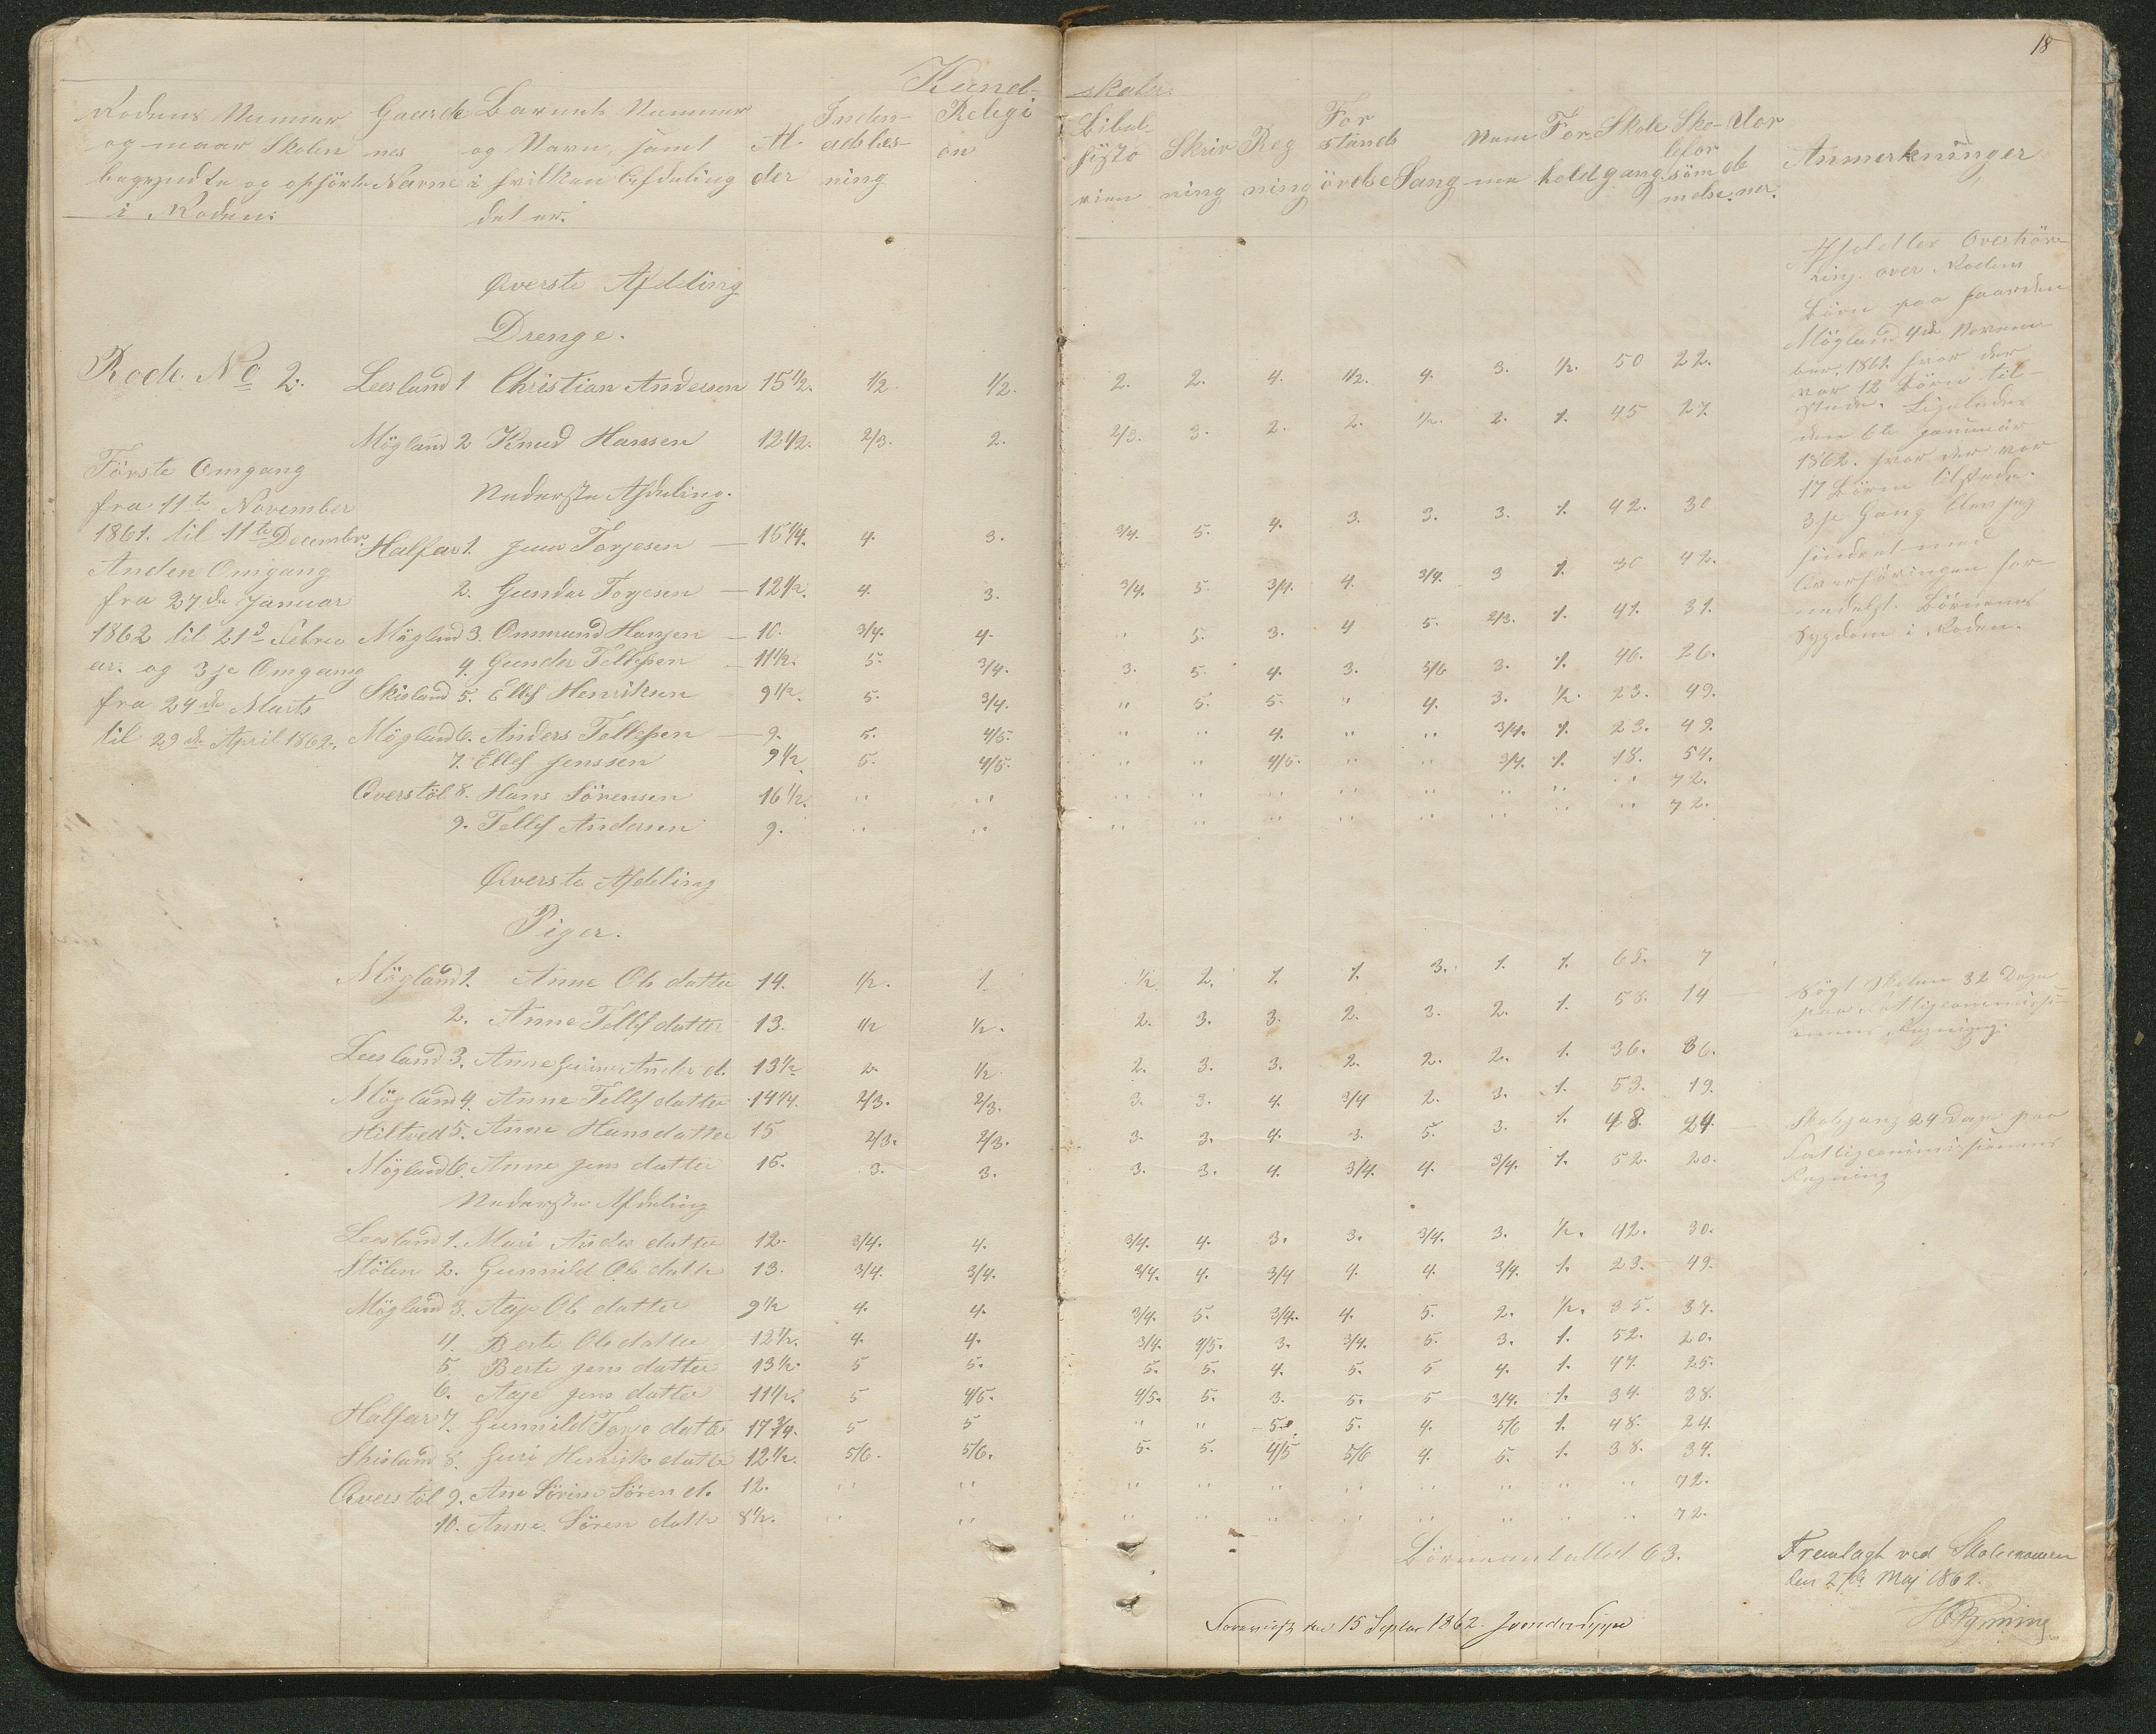 18
Kund- skaber
Rodens Nummer Gaarde Barnets Nummer Al- Inden- Religi Bibel- Skriv Reg For Sang Nem For Skole Sko- Uor Anmerkninger
og naar Skolen nes og Navn, samt der adlæs- on histo ning ning stands me hold gang lefor de
begyndte og ophörte Navne i hvilken Afdeling ning rien övelse söm ner.
i Roden: det er. melse.
Øverste Afdeling
Drenge.
Rode No 2. Leesland 1 Christian Andersen 15 1/2. 1/2 1/2. 2. 2. 4. 1/2. 4. 3. 1/2. 50 22.
Mögland 2 Knud Hansen 12 1/2. 2/3. 2. 2/3. 3. 2. 2. 1/2. 2. 1. 45 27.
Nederste Afdeling.
Förste Omgang
fra 11te November
1861. til 11te Decembr.
Anden Omgang
fra 27de Januar
1862 til 21d Febru
ar. og 3je Omgang
fra 24de Marts
til 29de April 1862.
Halfar 1. Jens Torjesen — 15 1/4. 4. 3. 3/4. 5. 4. 3. 3. 3. 1. 42. 30
2. Gunder Torjesen — 12 1/2. 4. 3. 3/4. 5. 3/4. 4. 3/4. 3 1. 30 42.
Mögland 3. Onmund Hansen — 10. 3/4. 4. " 5. 3. 4 5. 2/3. 1. 41. 31.
4. Gunder Tellefsen — 11 1/2. 5. 3/4. 3. 5. 4. 3. 5/6 3. 1. 46. 26.
Skisland 5. Ellef Henriksen 9 1/2. 5. 3/4. " 5. 5. " 4. 3. 1/2. 23. 49.
Mögland 6. Anders Tellefsen — 9. 5. 4/5. " " 4. " " 3/4. 1. 23. 49.
7. Ellef Jenssen 9 1/2 5. 4/5. " " 4/5. " " 3/4. 1. 18. 54.
Øverstöl 8. Hans Sörensen 16 1/2. " " " " " " " " " " 72.
9. Tellef Andersen 9. " " " " " " " " " " 72.
Afholdtes Overhör-
ing over Rodens
Börn paa Gaarden
Mögland 4de Novem
ber. 1861. hvor der
var 12 Börn til-
stede. Ligeledes
den 6te Januar
1862. hvor der var
17 Börn tilstede.
3je Gang blev jeg
hindret med
Overhöringen for-
medelst Börnenes
Sygdom i Roden.
Øverste Afdeling
Piger.
Mögland 1. Anne Ols datter 14. 1/2. 1. 1/2 2. 1. 1. 3. 1. 1. 65. 7
2. Anne Tellef datter 13. 1/2 1/2. 2. 3. 3. 2. 3. 2. 1. 58. 14 —
Leesland 3. Anne Anders d. 13 1/2 2. 1/2 2. 3. 3. 2. 2. 2. 1. 36. 36.
Mögland 4. Anne Tellef datter 14 1/4. 2/3. 2/3. 3. 3. 4. 3/4 2. 3. 1. 53. 19.
Hiltved 5. Anne Hans datter 15 2/3. 2/3. 3. 3. 4. 3. 5. 3. 1. 48. 24. —
Mögland 6. Anne Jens datter 15. 3. 3. 3. 3. 4. 3/4. 4. 3/4. 1. 52. 20.
Sögt Skolen 32 Dage
paa Fattigcommissi-
onens Regning.
Skolegang 24 Dage paa
Fattigcommissionens
Regning
Nederste Afdeling
Leesland 1. Mari Anders datter 12. 3/4. 4. 3/4. 4. 3. 3. 3/4. 3. 1/2. 42. 30.
Stölen 2. Gunnild Ols datter 13. 3/4. 3/4. 3/4. 4. 3/4 4. 4. 3/4. 1. 23. 49.
Mögland 3. Aaje Ols datter 9 1/2 4. 4. 3/4. 5. 3/4. 4. 5. 2. 1/2. 35. 37.
4. Berte Ols datter 12 1/2. 4. 4. 3/4. 4/5. 3. 3/4. 5. 3. 1. 52. 20.
5. Berte Jens datter 13 1/2. 5 5. 5. 5. 4. 5. 5 4. 1. 47. 25.
6. Aaje Jens datter 11 1/2. 5 4/5. 4/5. 5. 3. 5. 5 3/4. 1. 34. 38.
Halfar 7. Gunnild Torje datter 17 3/4. 5 5 " " 5. 5. 4. 5/6 1. 48. 24.
Skisland 8. Guri Henriks datter 12 1/2. 5/6. 5/6. 5. 5. 4/5 5/6 4. 5. 1. 38. 34.
Øverstöl 9. Ane Sörine Sören d. 12. " " " " " " " " " " 72.
10. Anne Sören datter 8 1/2. " " " " " " " " " " 72.
Börneantallet 63.
Fremlagt ved Skolexamen
den 27de Maj 1862.
Foreviist den 15 Septbr 1862.